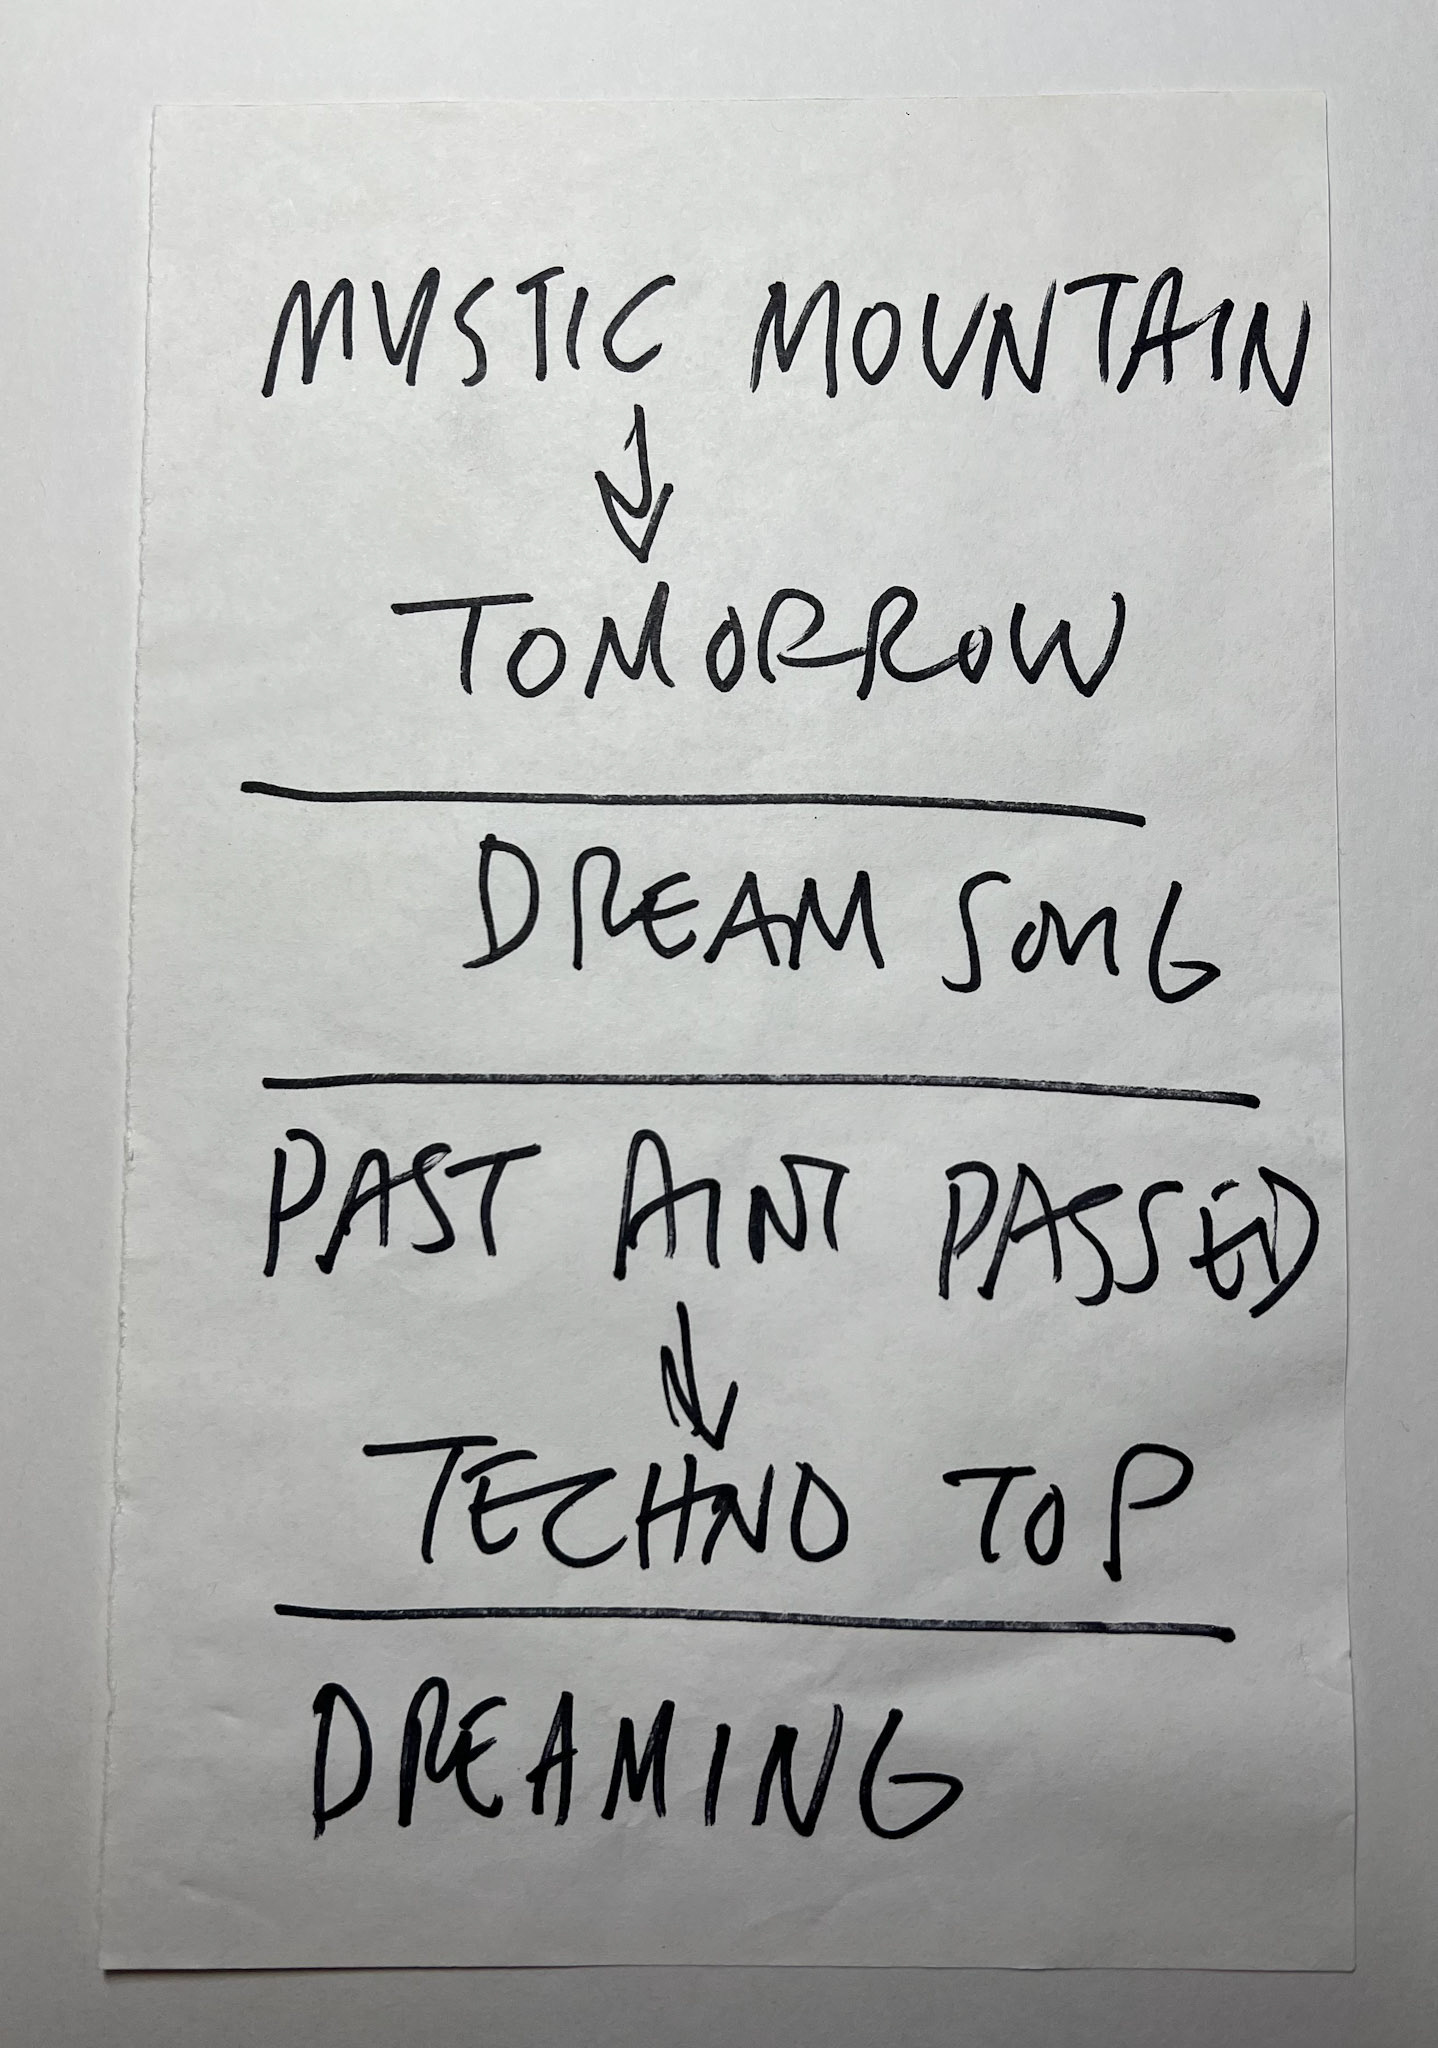 MYSTIC MOUNTAIN
TOMORROW
DREAM SONG
PAST AINT PASSED
TECHNO TOP
DREAMING